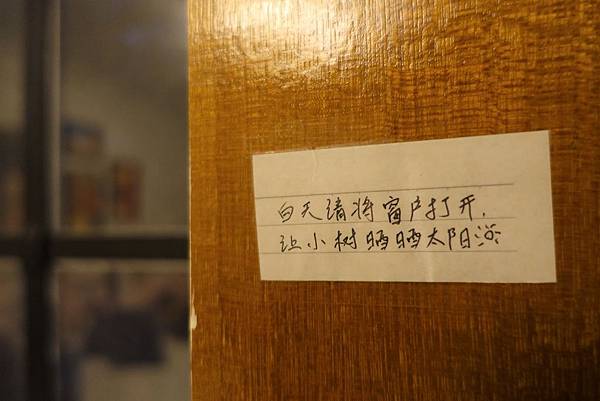 白天请将窗户打开.
让小树晒晒太阳浴